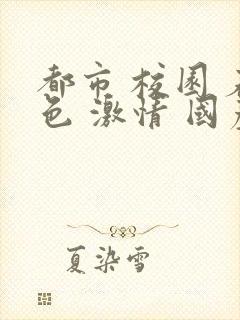 都市校园
色激情国
夏染雪